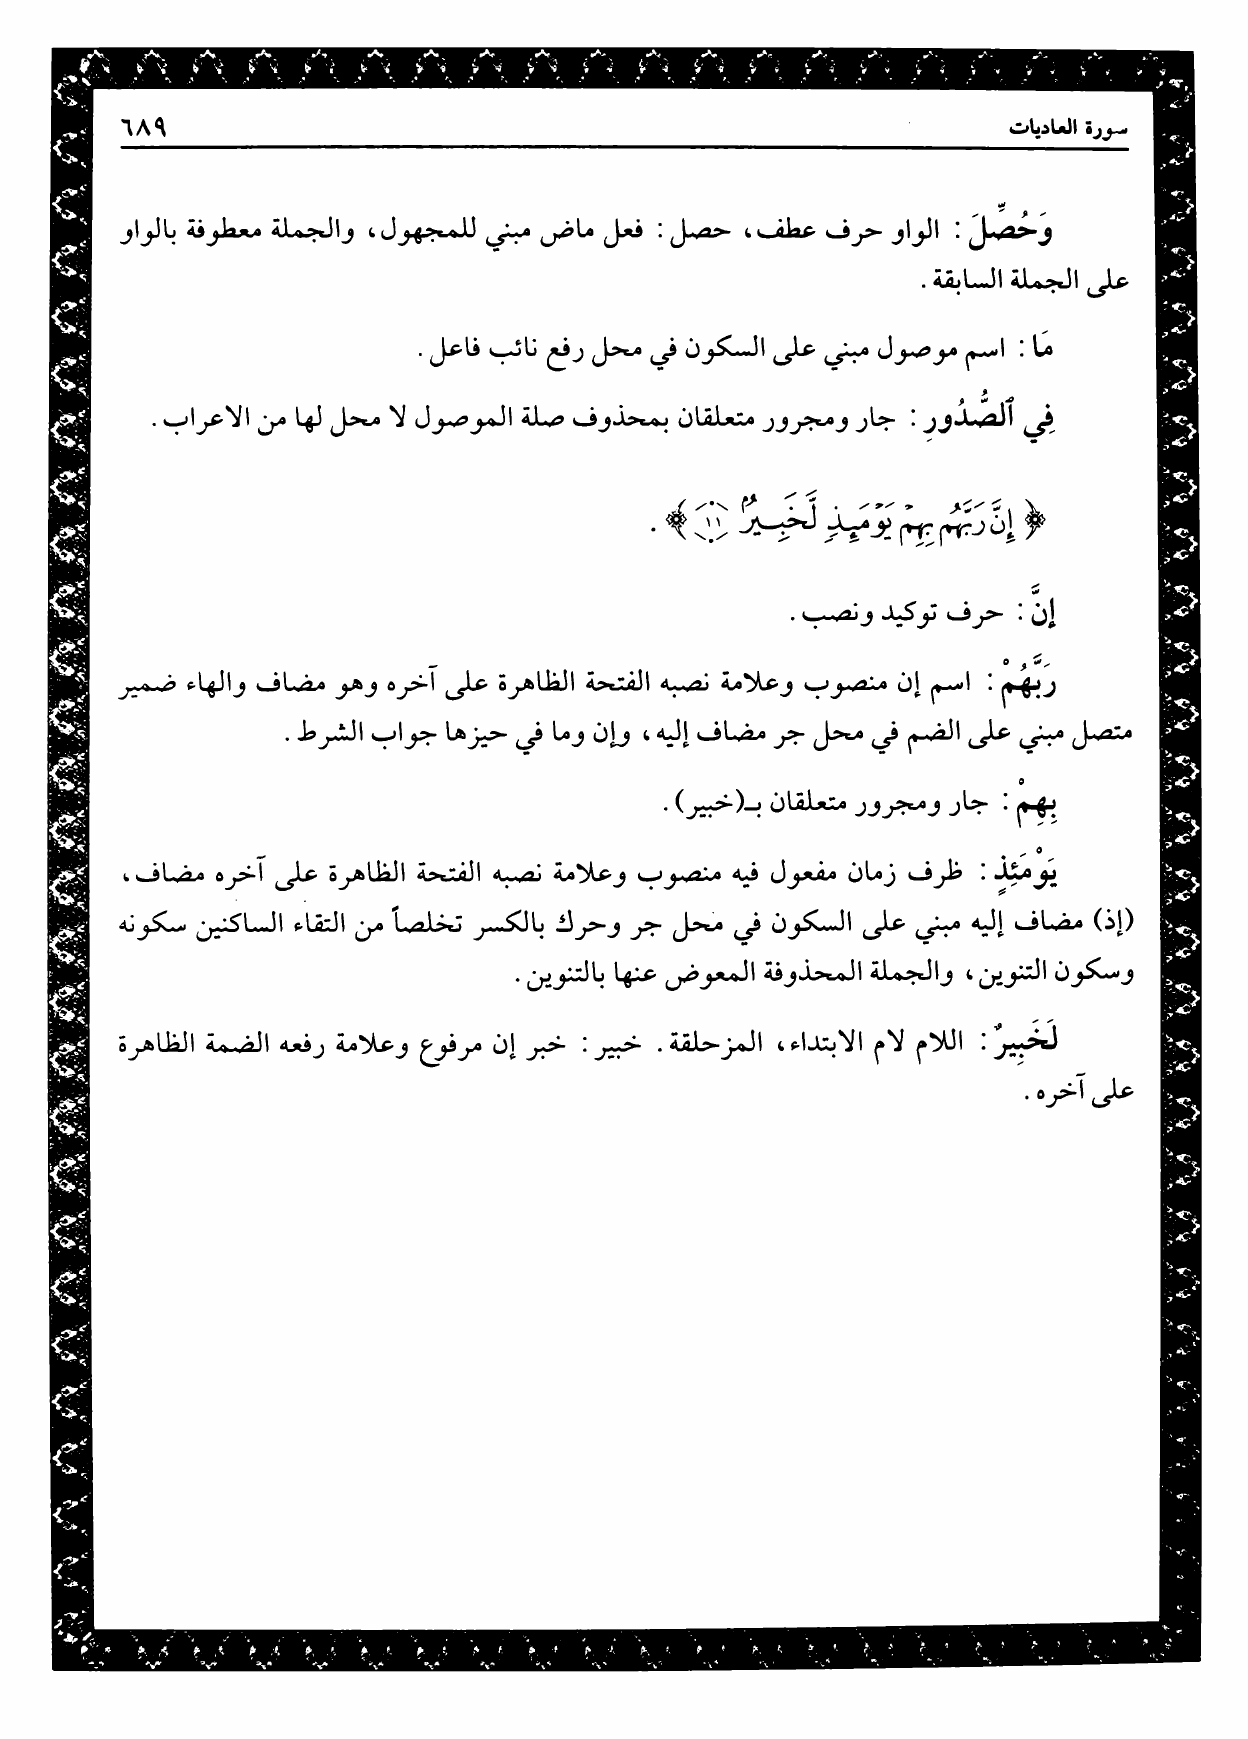 سورة العاديات ٦٨٩
وَحُصِّلَ: الواو حرف عطف، حصل: فعل ماض مبني للمجهول، والجملة معطوفة بالواو
على الجملة السابقة.
مَا: اسم موصول مبني على السكون في محل رفع نائب فاعل.
فِي ٱلصُّدُورِ: جار ومجرور متعلقان بمحذوف صلة الموصول لا محل لها من الاعراب.
﴿ إِنَّ رَبَّهُم بِهِمۡ يَوۡمَئِذٖ لَّخَبِيرُۢ ١١ ﴾.
إنَّ: حرف توكيد ونصب.
رَبَّهُمْ: اسم إن منصوب وعلامة نصبه الفتحة الظاهرة على آخره وهو مضاف والهاء ضمير
متصل مبني على الضم في محل جر مضاف إليه، وإن وما في حيزها جواب الشرط.
بِهِمْ: جار ومجرور متعلقان بـ(خبير).
يَوْمَئِذٍ: ظرف زمان مفعول فيه منصوب وعلامة نصبه الفتحة الظاهرة على آخره مضاف،
(إذ) مضاف إليه مبني على السكون في محل جر وحرك بالكسر تخلصاً من التقاء الساكنين سكونه
وسكون التنوين، والجملة المحذوفة المعوض عنها بالتنوين.
لَخَبِيرٌ: اللام لام الابتداء، المزحلقة. خبير: خبر إن مرفوع وعلامة رفعه الضمة الظاهرة
على آخره.